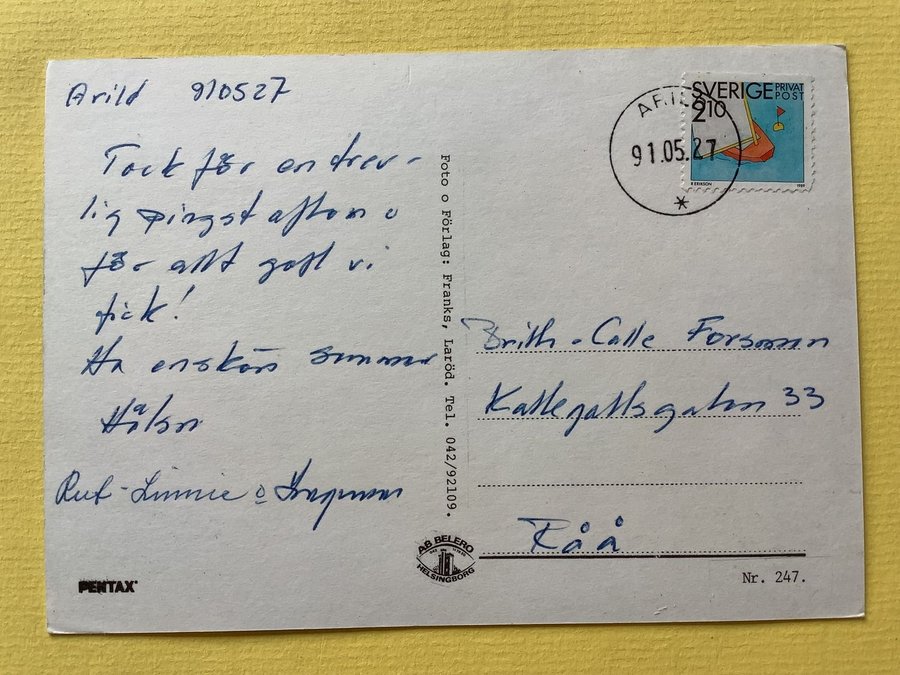 Arild 910527
Tack för en trev-
lig pingstafton o
för allt gott vi
fick!
Ha en skön sommar
Hälsn
Rut-Linnie o Ingemar
Foto o Förlag: Franks, Laröd. Tel. 042/92109.
PENTAX
AB BELERO
HELSINGBORG
SVERIGE PRIVAT
POST
2.10
R ERIKSON
ARILD
91.05.27
Brith-Calle Forsman
Kattegattsgatan 33
Råå
Nr. 247.